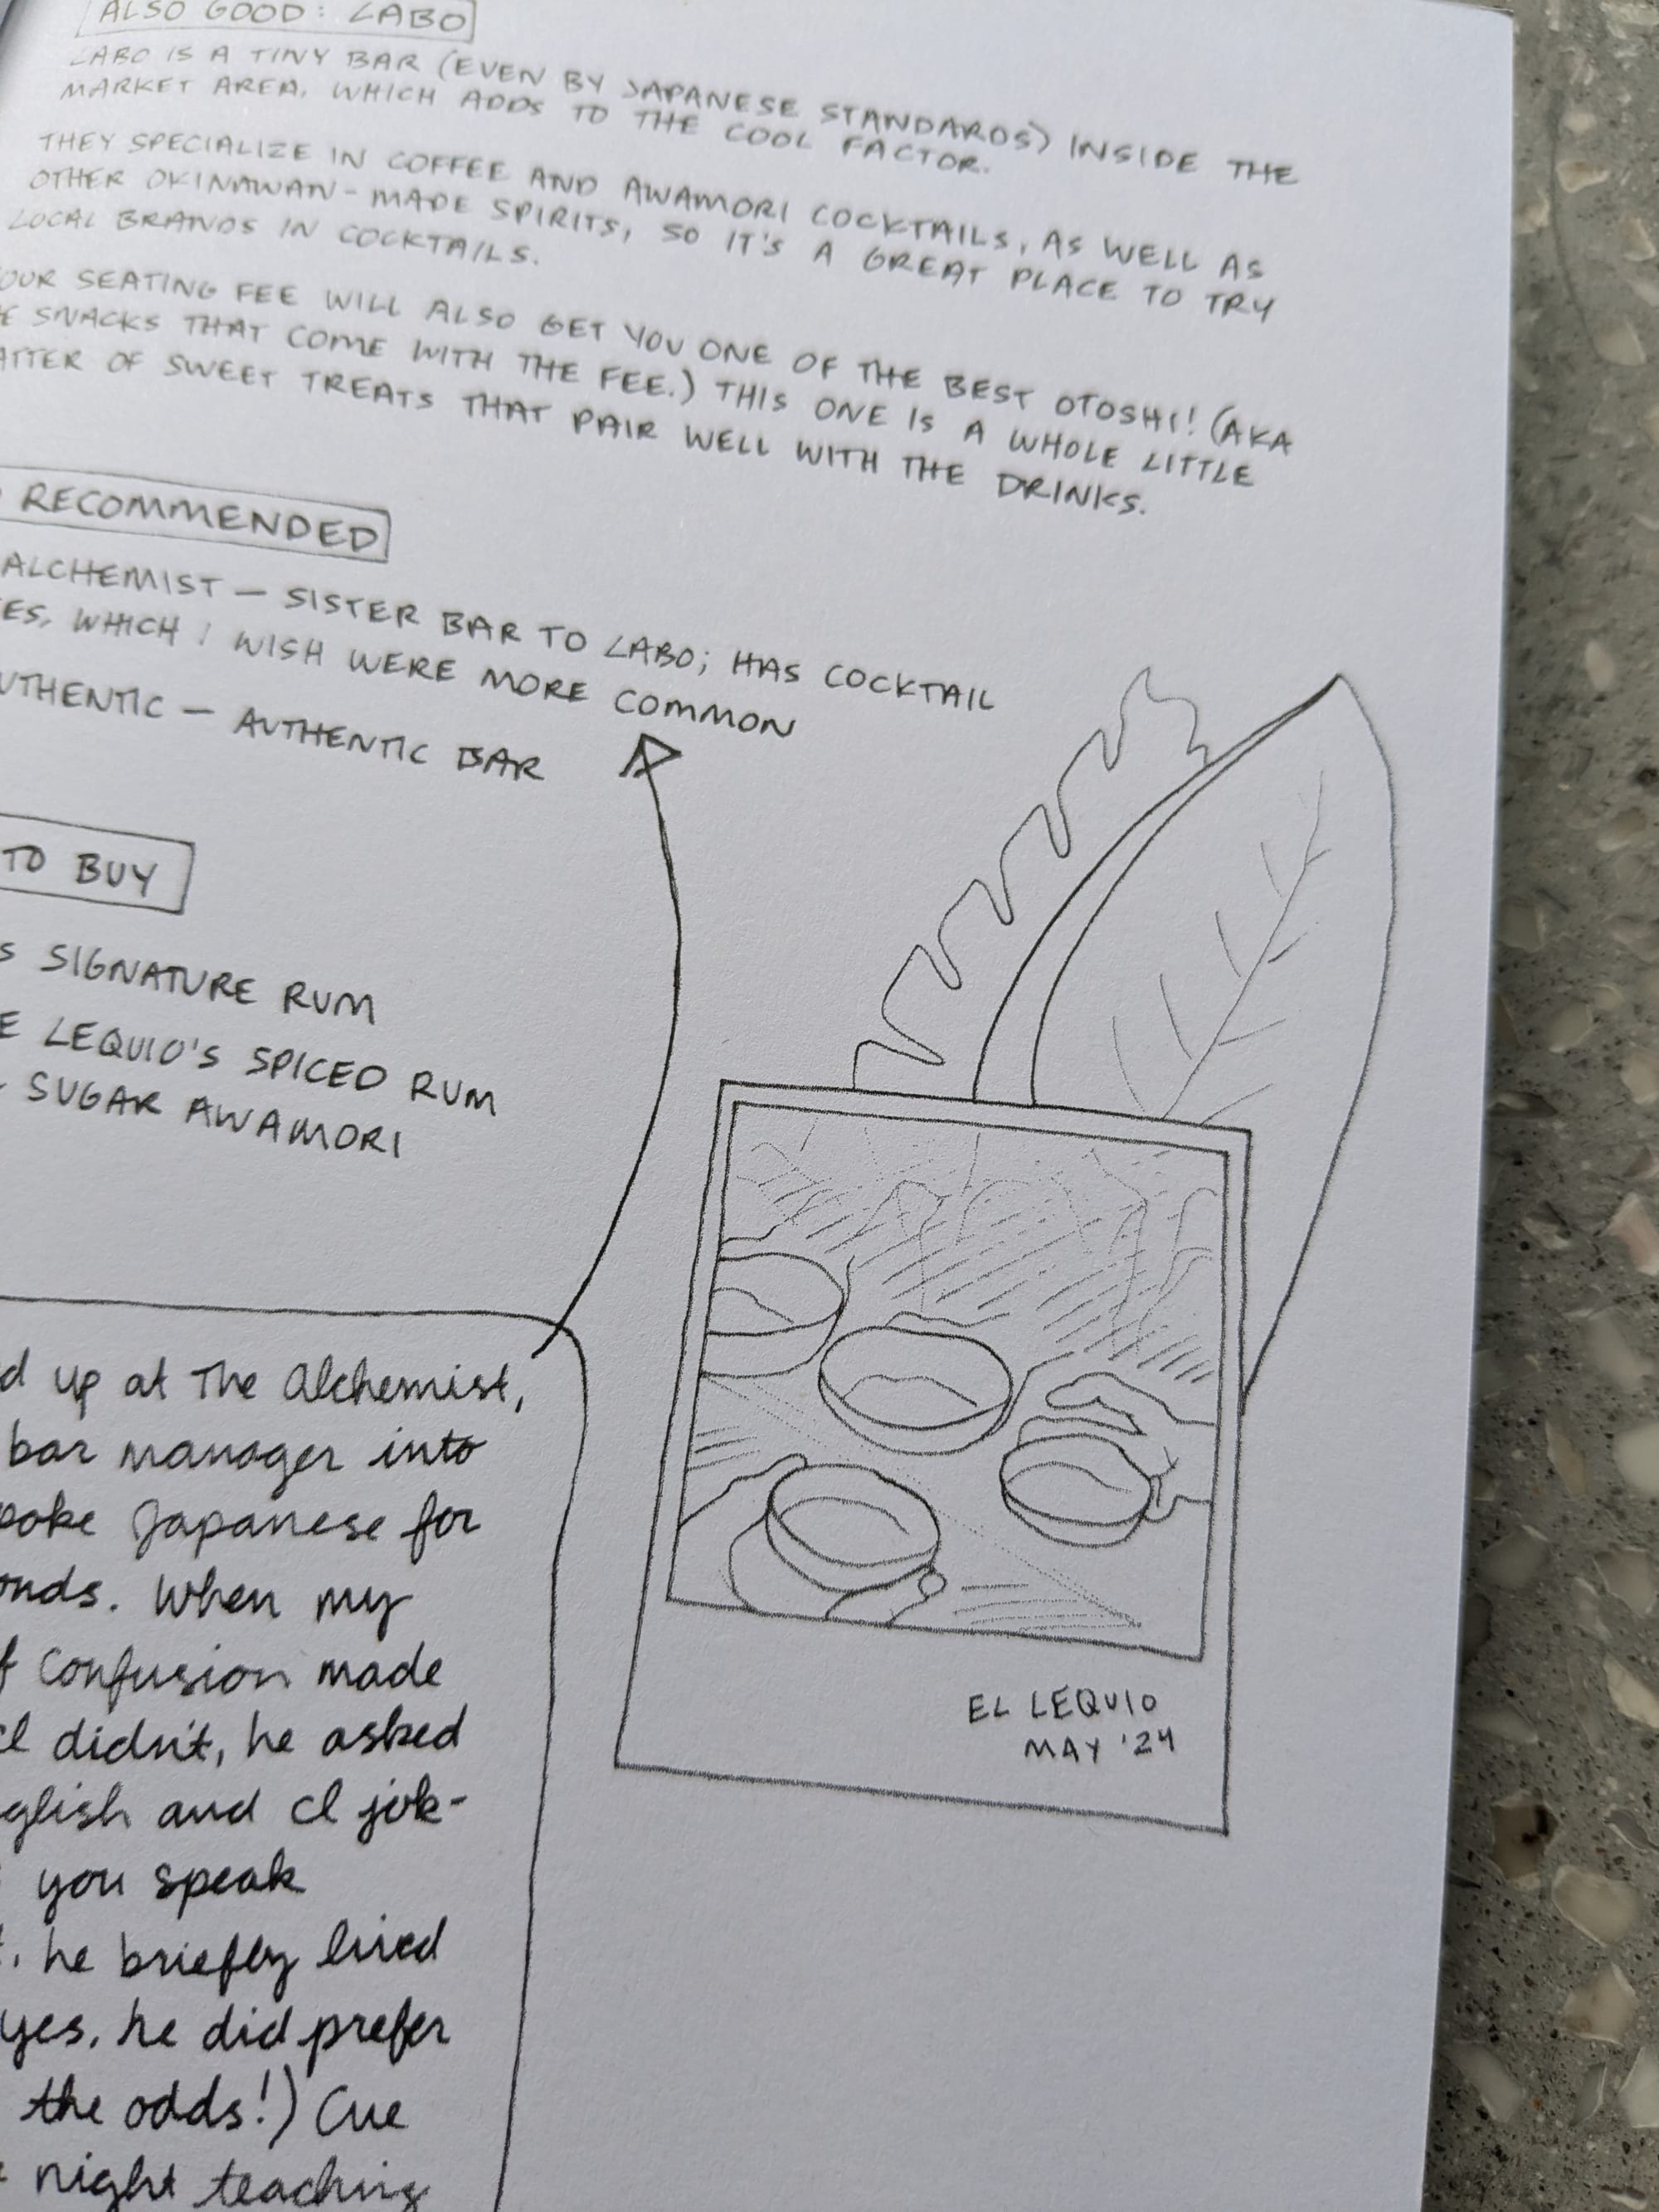 ALSO GOOD: LABO
LABO IS A TINY BAR (EVEN BY JAPANESE STANDARDS) INSIDE THE
MARKET AREA, WHICH ADDS TO THE COOL FACTOR.
THEY SPECIALIZE IN COFFEE AND AWAMORI COCKTAILS, AS WELL AS
OTHER OKINAWAN-MADE SPIRITS, SO IT'S A GREAT PLACE TO TRY
LOCAL BRANDS IN COCKTAILS.
OUR SEATING FEE WILL ALSO GET YOU ONE OF THE BEST OTOSHI! (AKA
SNACKS THAT COME WITH THE FEE.) THIS ONE IS A WHOLE LITTLE
ATTER OF SWEET TREATS THAT PAIR WELL WITH THE DRINKS.
RECOMMENDED
ALCHEMIST — SISTER BAR TO LABO; HAS COCKTAIL
ES, WHICH I WISH WERE MORE COMMON
UTHENTIC — AUTHENTIC BAR
TO BUY
S SIGNATURE RUM
E LEQUIO'S SPICED RUM
SUGAR AWAMORI
d up at The Alchemist,
bar manager into
poke Japanese for
onds. When my
f confusion made
I didn't, he asked
glish and I jok-
you speak
he briefly lived
yes, he did prefer
the odds!) Cue
night teaching
EL LEQUIO
MAY '24